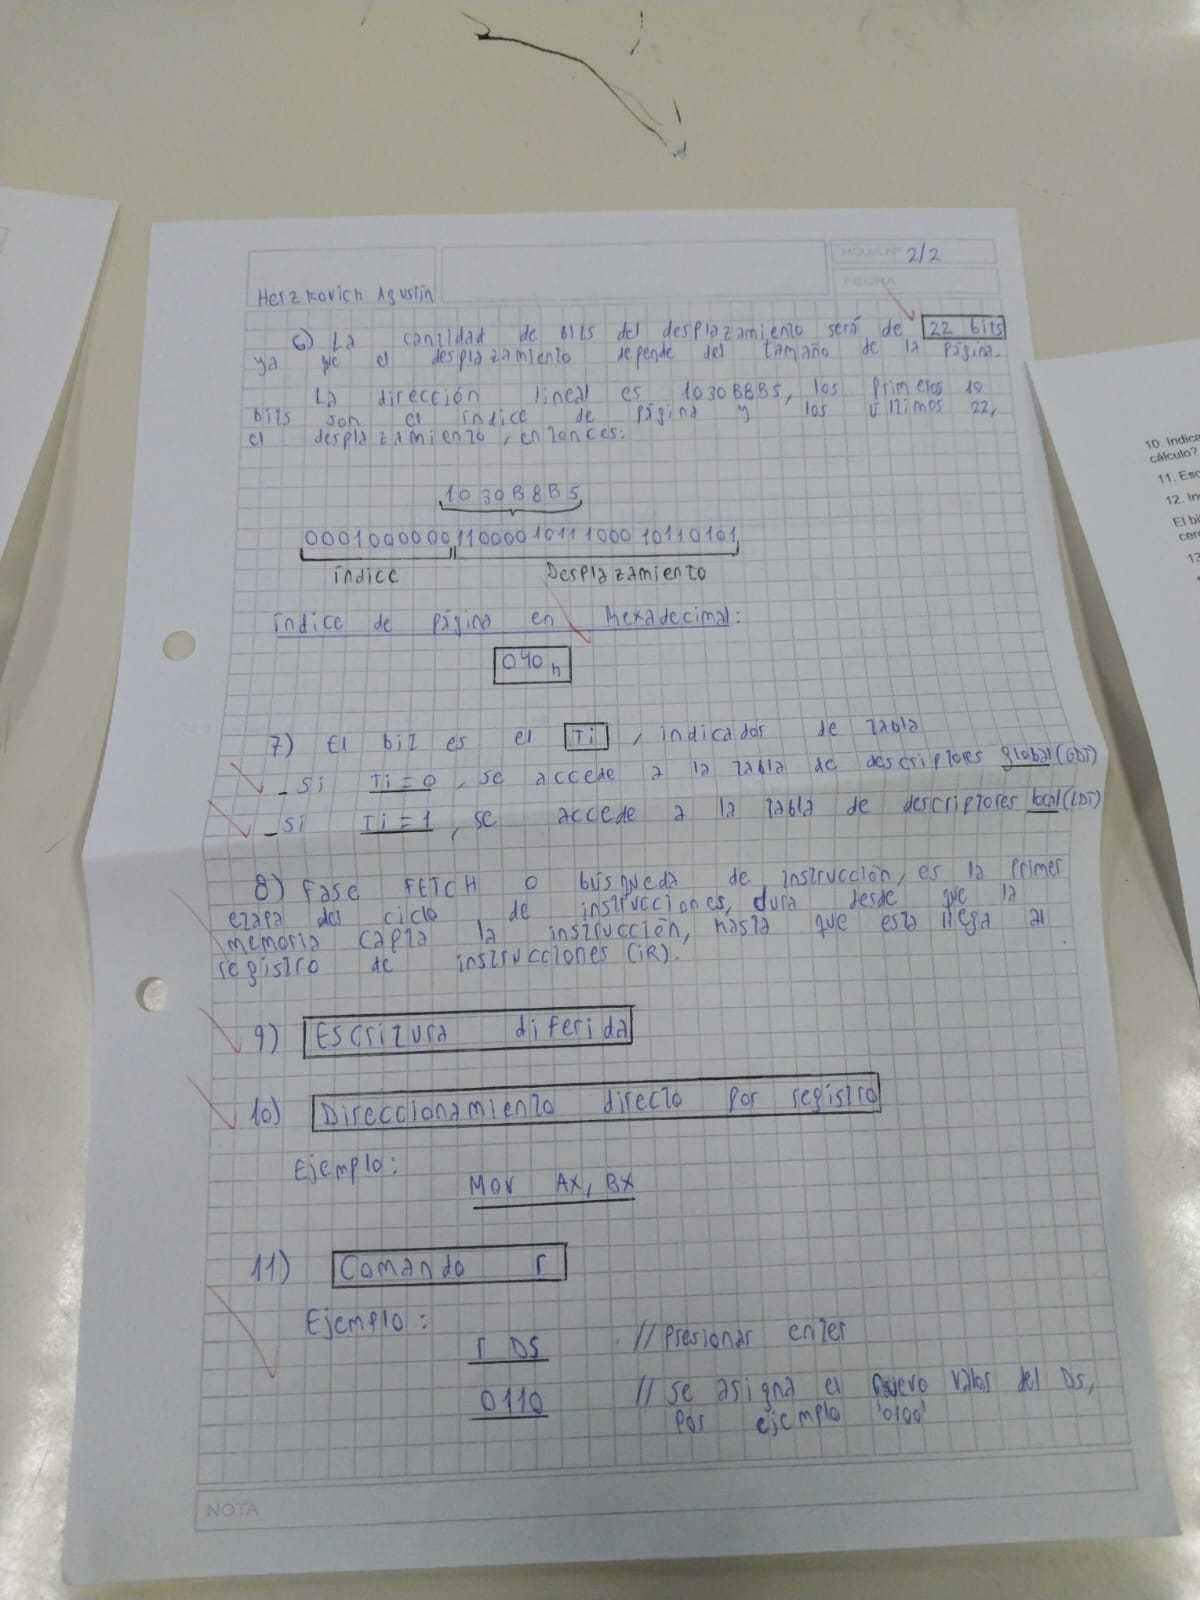 HOJA Nº 2/2
FECHA
Herzkovich Agustín
6) La cantidad de bits del desplazamiento será de 22 bits
ya que el desplazamiento depende del tamaño de la página.
La dirección lineal es 1030B8B5, los primeros 10
bits son el índice de página y los últimos 22,
el desplazamiento, entonces:
1030B8B5
00010000001100001011100010110101
índice Desplazamiento
índice de página en hexadecimal:
040h
7) El bit es el Ti, indicador de tabla
- Si Ti=0, se accede a la tabla de descriptores global (GDT)
- Si Ti=1, se accede a la tabla de descriptores local (LDT)
8) Fase FETCH o búsqueda de instrucción, es la primer
etapa del ciclo de instrucciones, dura desde que la
memoria capta la instrucción, hasta que esta llega al
registro de instrucciones (iR).
9) Escritura diferida
10) Direccionamiento directo por registro
Ejemplo:
Mov AX, BX
11) Comando r
Ejemplo:
r DS // Presionar enter
0110 // se asigna el nuevo valor del Ds,
por ejemplo '0100'
NOTA
10. Indica
cálculo?
11. Esc
12. In
El bi
cer
13